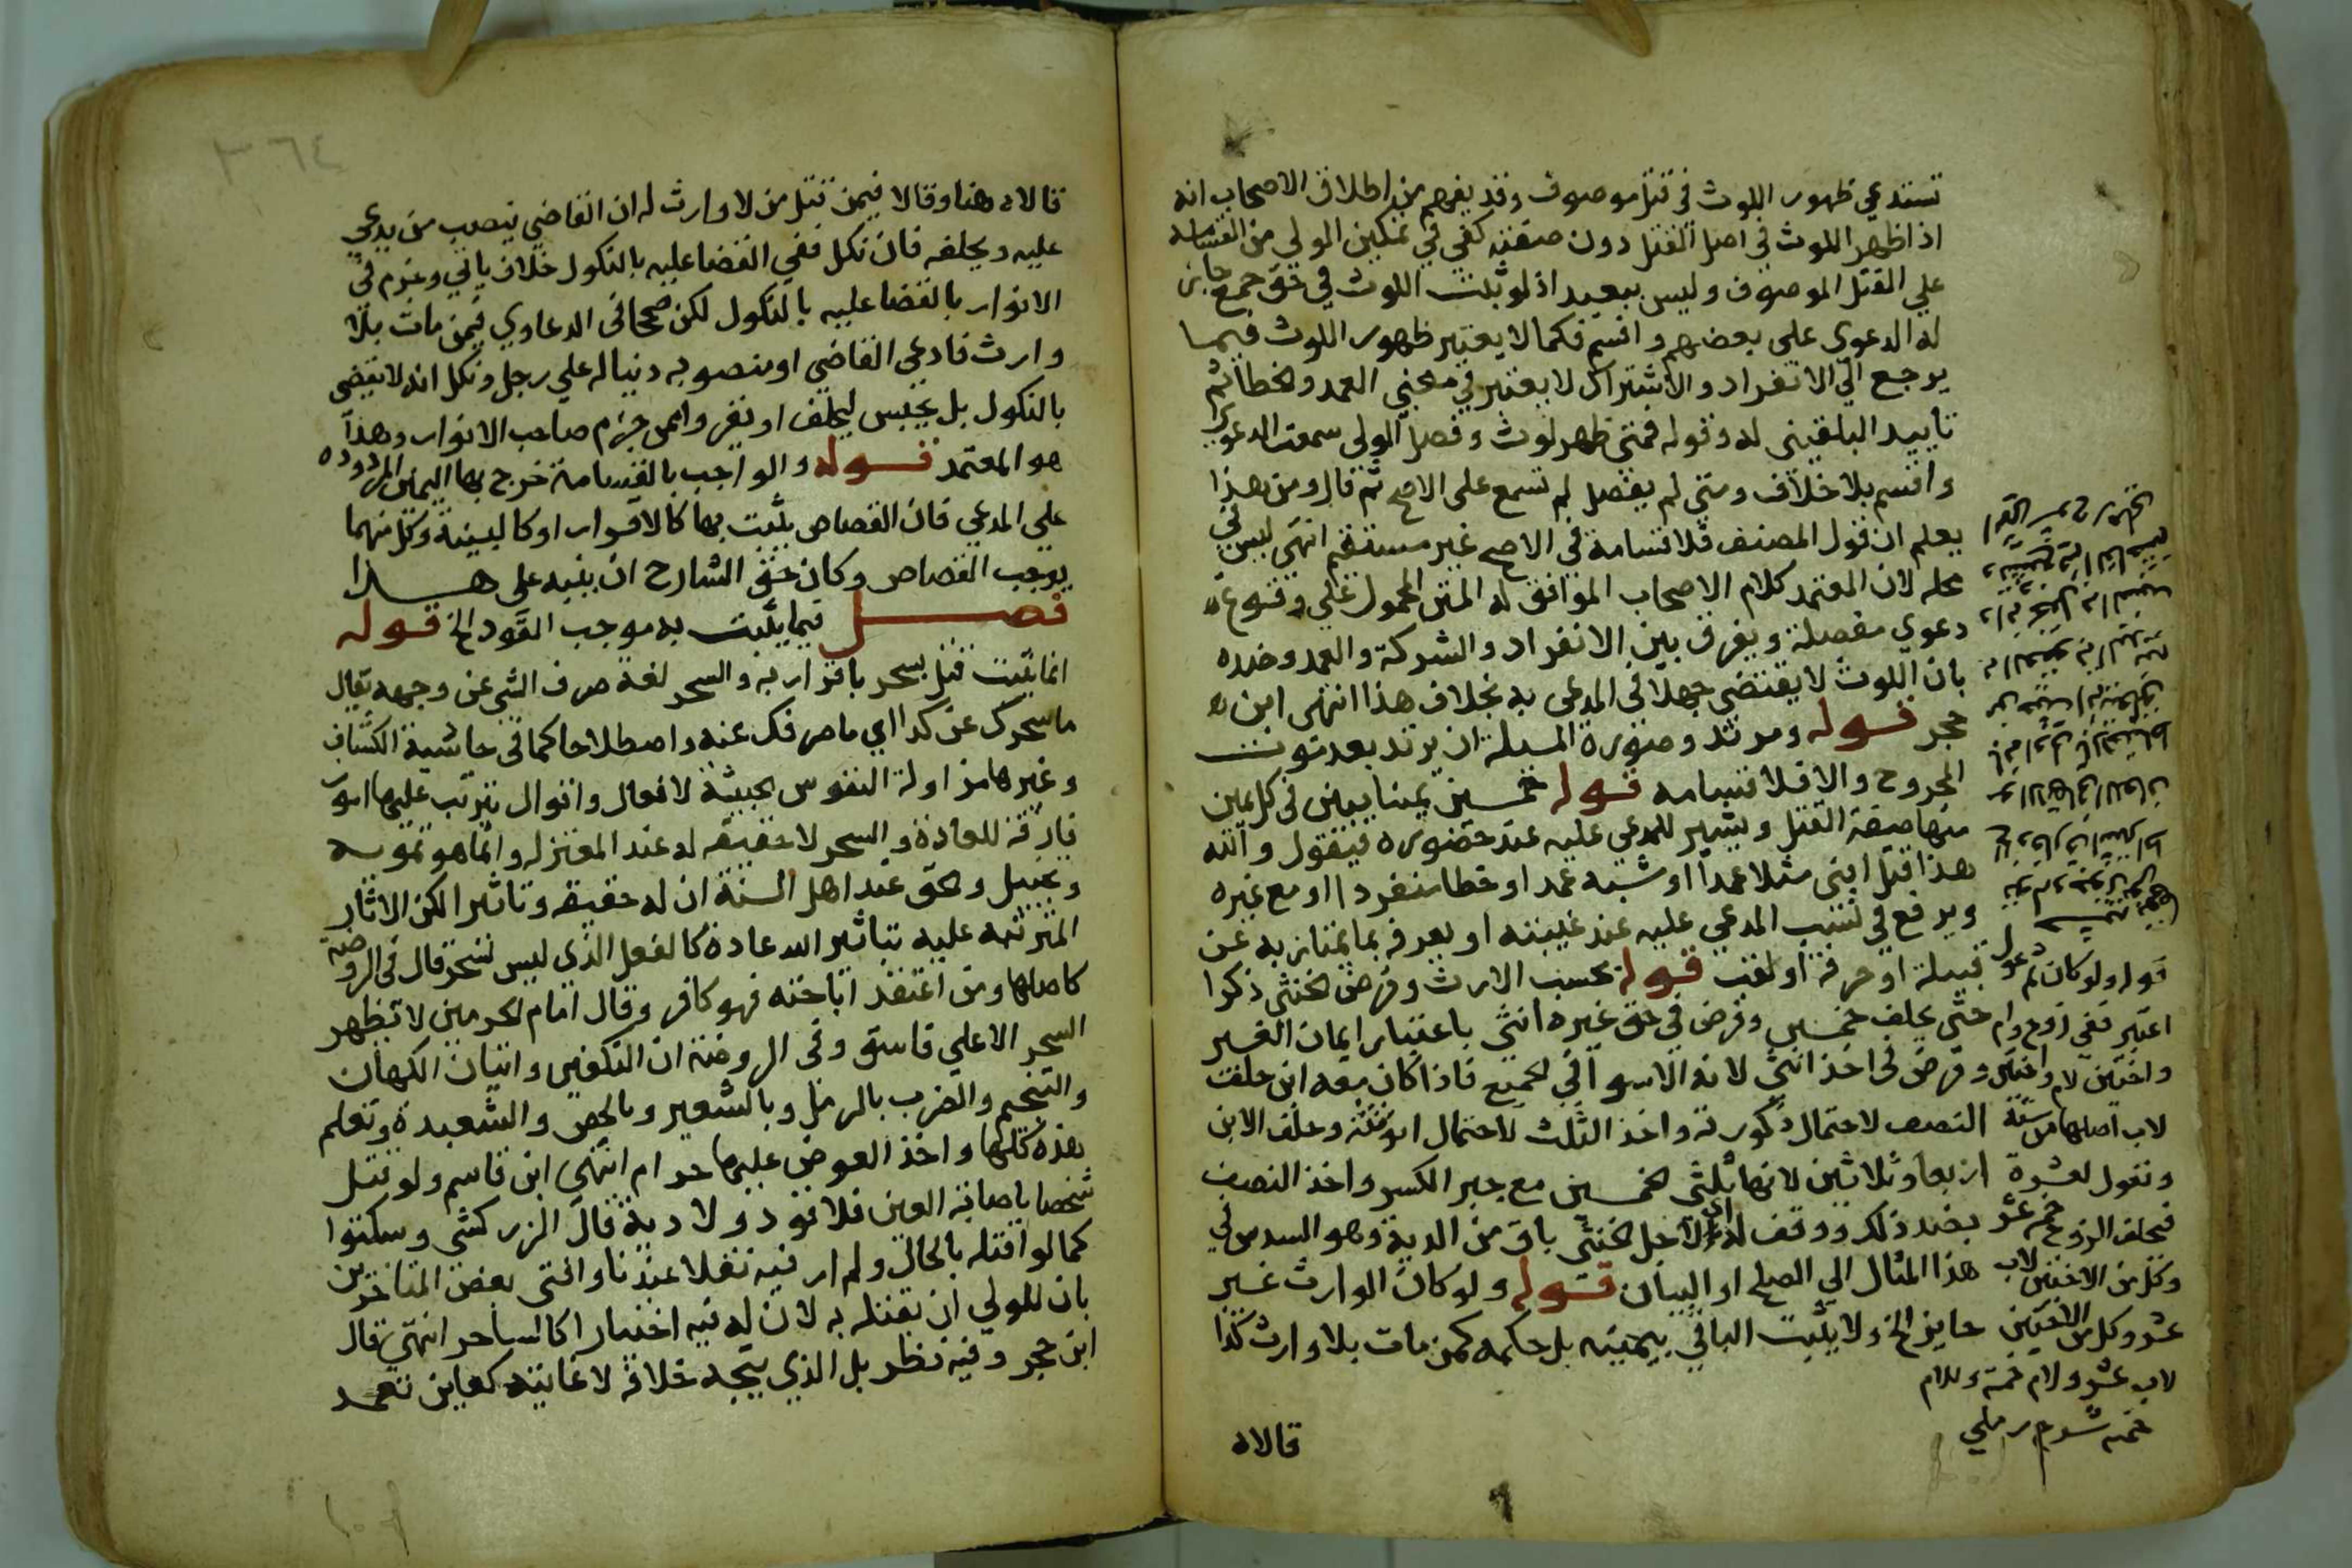 تستدعي ظهور اللوث في قتل موصوف وقد يفهم من اطلاق الاصحاب انه
اذا ظهر اللوث في اصل القتل دون صفته كفي في تمكين الولي من القسامة
علي القتل الموصوف وليس ببعيد اذ لو ثبت اللوث في حق جمع جاز
له الدعوي علي بعضهم واقسم فكما لا يعتبر ظهور اللوث فيما
يرجع الي الانفراد والاشتراك لا يعتبر في معني العمد والخطأ ثم
تاييد البلقيني له وقوله فمتي ظهر لوث وفصل الولي سمعت الدعوي
واقسم بلا خلاف ومتي لم يفصل لم تسمع علي الاصح ثم قال ومن هذا
يعلم ان قول المصنف فلا قسامة في الاصح غير مستقيم انتهي ليس في
محله لان المعتمد كلام الاصحاب الموافق له المتن المحمول علي وقوع
دعوي مفصلة ويفرق بين الانفراد والشركة والعمد وضده
بان اللوث لا يقتضي جهلا في المدعي به بخلاف هذا انتهي ابن
حجر قوله ومرتد وصورة المسلة ان يرتد بعد موت
المجروح والا فلا قسامه قوله خمسين يمينا يبين في كل يمين
منها صفة القتل ويشير للمدعي عليه عند حضوره فيقول والله
هذا قتل ابني مثلا عمدا او شبه عمد او خطا منفردا او مع غيره
ويرفع في نسب المدعي عليه عند غيبته او يعرفه بما يمتاز به عن
قبيلة او حرفة او لقب قوله بحسب الارث وفرض الخنثي ذكرا
حتي يحلف خمسين وفرض في حق غيره انثي باعتبار ايمان الغير
وفرض في اخذ انثي لانه الاسوا في الجميع فاذا كان معه ابن حلفت
النصف لاحتمال ذكورته واخذ الثلث لاحتمال انوثته وحلف الابن
اربعا وثلاثين لانها ثلثي الخمسين مع جبر الكسر واخذ النصف
بضد ذلك ووقف لاجل الخنثي باق من الدية وهو السدس في
هذا المثال الي الصلح او البيان قوله ولو كان الوارث غير
حايز الخ ولا يثبت الباقي بيمينه بل حكمه كمن مات بلا وارث كذا
قوله ولو كان ثم عول
اعتبر ففي زوج وام
واختين لام واختين
لاب اصلها من ستة
وتعول لعشرة
فيحلف الزوج خمسة عشر
وكل من الاختين لاب
عشر وكل من الاختين
لاب عشر ولام خمسة وللام
خمسة ش م رملي
قالاه
٣٦٤
قالاه هنا وقالا فيمن قتل من لا وارث له ان القاضي ينصب من يدعي
عليه ويحلفه فان نكل ففي القضا عليه بالنكول خلاف ياتي وجزم في
الانوار بالقضا عليه بالنكول لكن صححا في الدعاوي فيمن مات بلا
وارث فادعي القاضي او منصوبه دينا له علي رجل ونكل انه لا يقضي
بالنكول بل يحبس ليحلف او يقر وممن جزم صاحب الانوار وهذا
هو المعتمد قوله والواجب بالقسامة خرج بها اليمين المردوده
علي المدعي فان القصاص يثبت بها كالاقرار او كالبينة وكل منهما
يوجب القصاص وكان حق الشارح ان ينبه علي هذا
فصل فيما يثبت به موجب القود الخ قوله
انما يثبت قتل بسحر باقرار به والسحر لغة صرف الشي عن وجهه يقال
ما سحرك عن كذا اي ما صرفك عنه واصطلاحا كما في حاشية الكشاف
وغيرها مزاولة النفوس الخبيثة لافعال واقوال يترتب عليها امور
خارقة للعادة والسحر لا حقيقه له عند المعتزله وانما هو تمويه
وتخييل والحق عند اهل السنة ان له حقيقه وتاثير الكن الاثار
المترتبه عليه بتاثير الله عادة كالفعل الذي ليس بسحر قال في الروضة
كاصلها ومن اعتقد اباحته فهو كافر وقال امام الحرمين لا يظهر
السحر الا علي فاسق وفي الروضة ان التكهن واتيان الكهان
والتنجيم والضرب بالرمل وبالشعير وبالحصي والشعبدة وتعلم
هذه كلها واخذ العوض عليها حرام انتهي ابن قاسم ولو قتل
شخصا باصابة العين فلا قود ولا دية قال الزركشي وسكتوا
كما لو اقتله بالحال ولم ار فيه نقلا عندنا وافتي بعض المتاخرين
بان للولي ان يقتله به لان له فيه اختيارا كالساحر انتهي قال
ابن حجر وفيه نظر بل الذي يتجه خلافه لا غايته كعاين تعمد